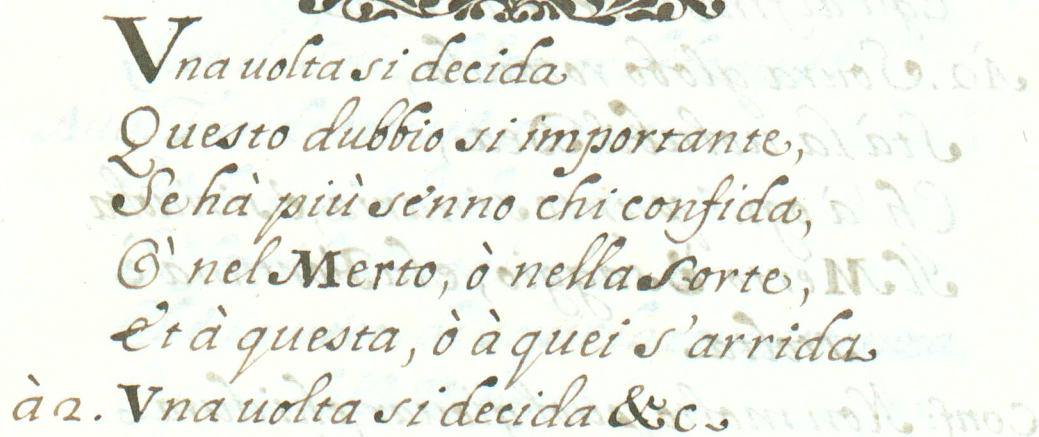 Vna uolta si decida
Questo dubbio si importante,
Se hà più senno chi confida,
Ò nel Merto, ò nella Sorte,
Et à questa, ò à quei s'arrida
à 2. Vna uolta si decida &c.